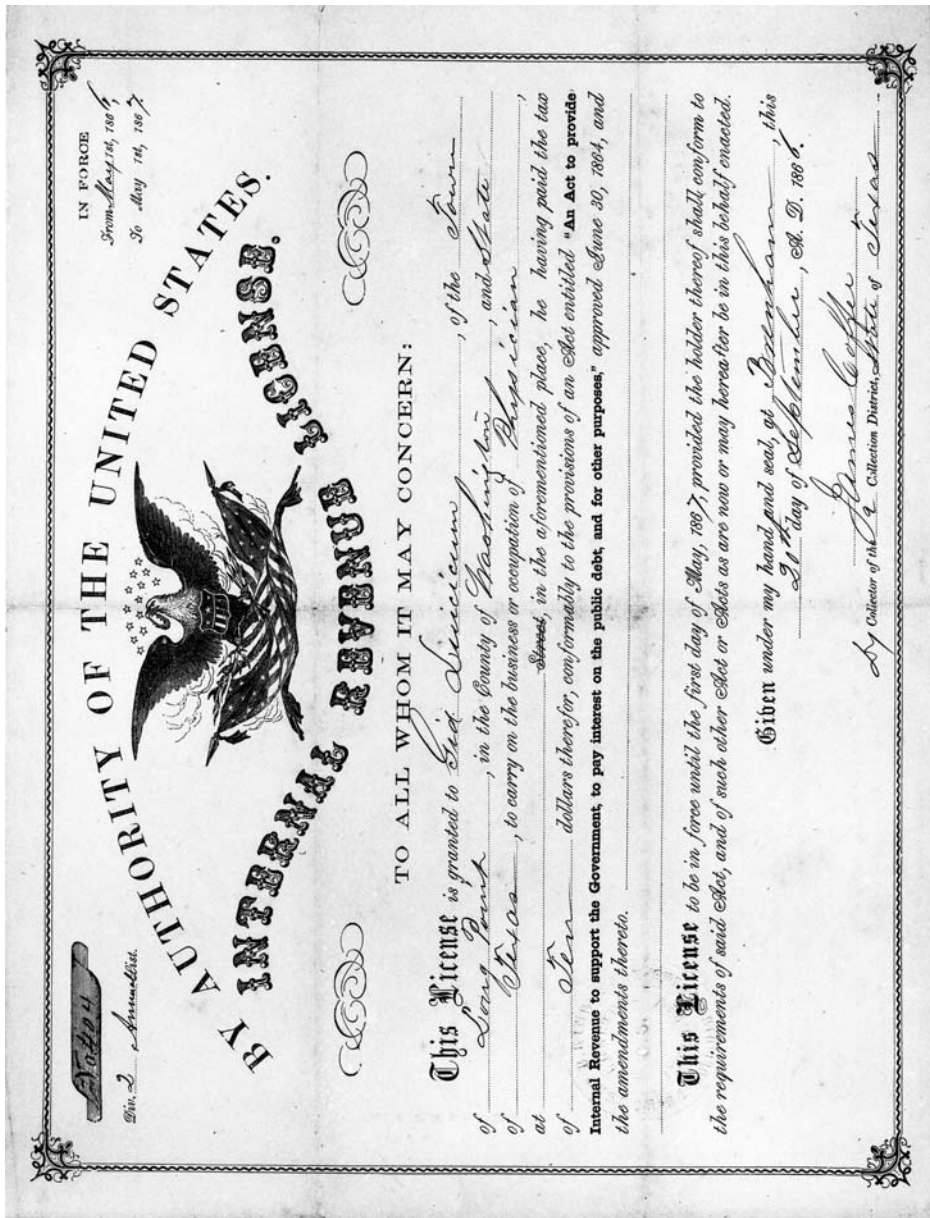 No 4104
Div. 2 Annual List.
IN FORCE
From May 1st, 1866,
To May 1st, 1867.
BY AUTHORITY OF THE UNITED STATES.
INTERNAL REVENUE LICENSE.
TO ALL WHOM IT MAY CONCERN:
This License is granted to Gid Lincicum, of the Town
of Long Point, in the County of Washington, and State
of Texas, to carry on the business or occupation of Physician,
at Street, in the aforementioned place, he having paid the tax
of Ten dollars therefor, conformably to the provisions of an Act entitled "An Act to provide
Internal Revenue to support the Government, to pay interest on the public debt, and for other purposes," approved June 30, 1864, and
the amendments thereto.
This License to be in force until the first day of May, 1867, provided the holder thereof shall conform to
the requirements of said Act, and of such other Act or Acts as are now or may hereafter be in this behalf enacted.
Given under my hand and seal, at Brenham, this
20th day of September, A. D. 1866.
James
Dy Collector of the Collection District, State of Texas